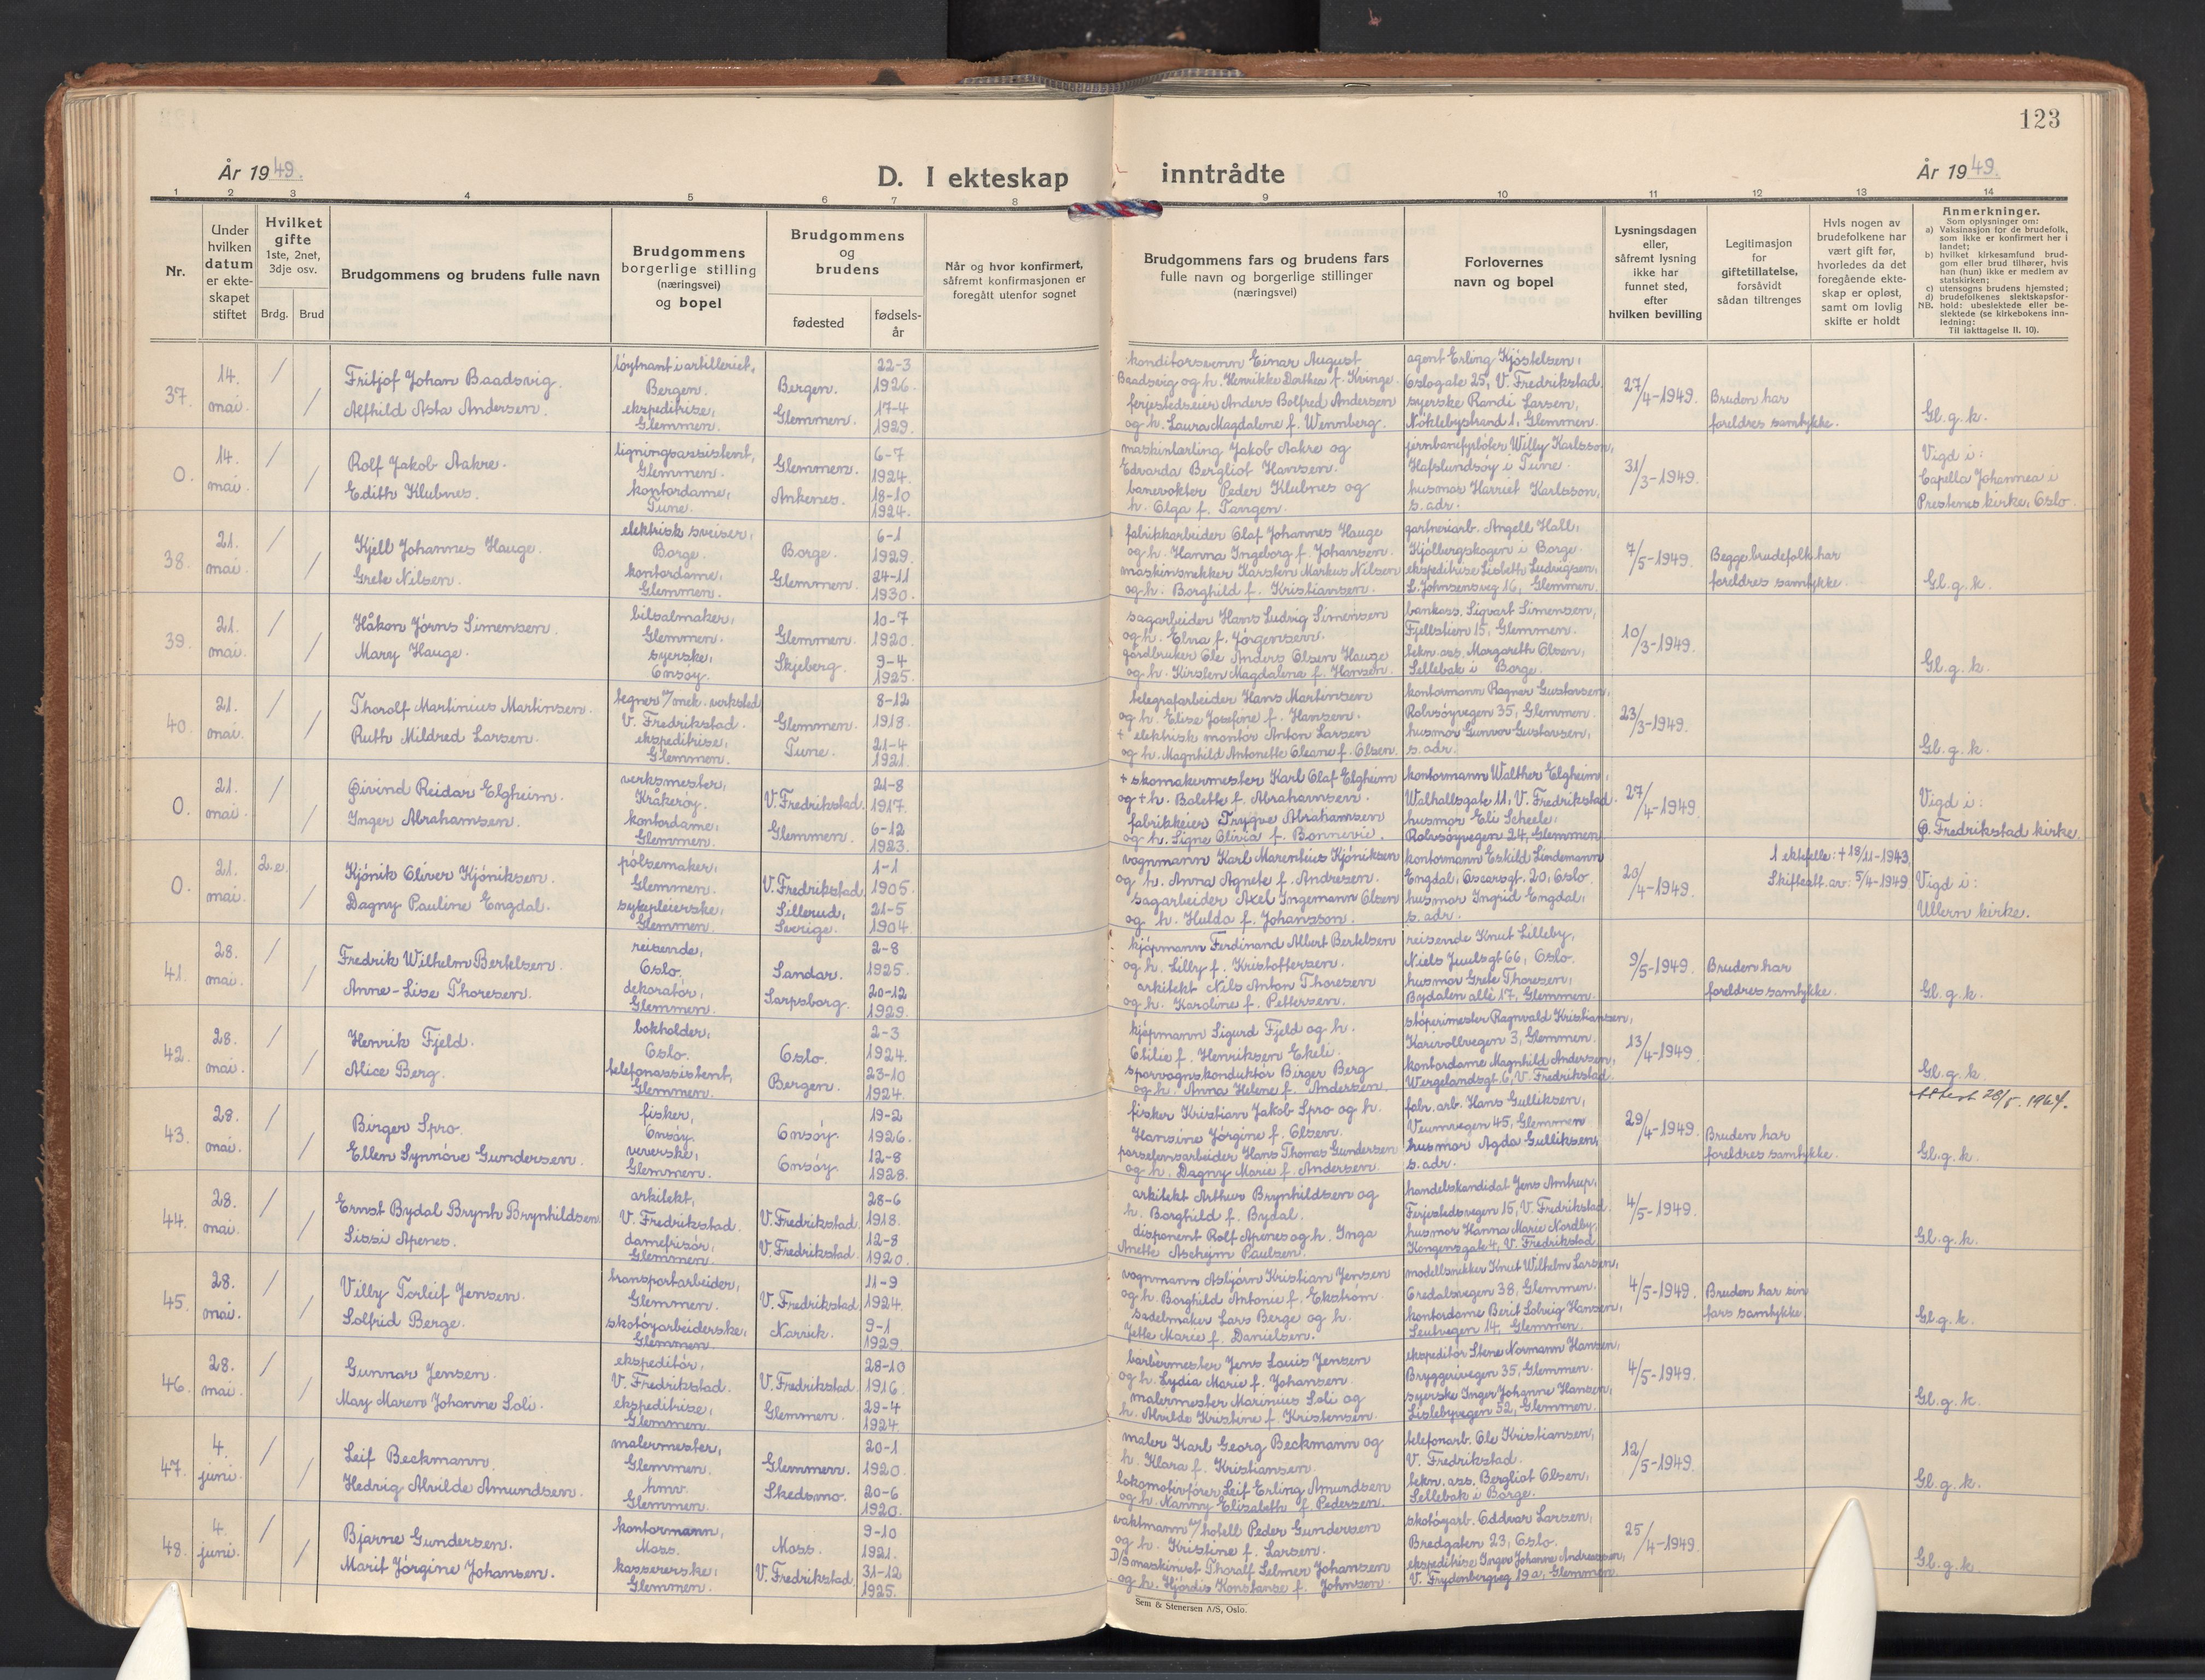 123
År 1949.
D. I ekteskap inntrådte
År 1949.
1 2 3 4 5 6 7 8 9 10 11 12 13 14
Nr.
Under hvilken datum er ekteskapet stiftet
Hvilket gifte 1ste, 2net, 3dje osv.
Brdg. Brud
Brudgommens og brudens fulle navn
Brudgommens borgerlige stilling (næringsvei) og bopel
Brudgommens og brudens
fødested
fødselsår
Når og hvor konfirmert, såfremt konfirmasjonen er foregått utenfor sognet
Brudgommens fars og brudens fars fulle navn og borgerlige stillinger (næringsvei)
Forlovernes navn og bopel
Lysningsdagen eller, såfremt lysning ikke har funnet sted, efter hvilken bevilling
Legitimasjon for giftetillatelse, forsåvidt sådan tiltrenges
Hvis nogen av brudefolkene har vært gift før, hvorledes da det foregående ekteskap er opløst, samt om lovlig skifte er holdt
Anmerkninger.
Som oplysninger om:
a) Vaksinasjon for de brudefolk, som ikke er konfirmert her i landet;
b) hvilket kirkesamfund brudgom eller brud tilhører, hvis han (hun) ikke er medlem av statskirken;
c) utensogns brudens hjemsted;
d) brudefolkenes slektskapsforhold: ubeslektede eller beslektede (se kirkebokens innledning:
NB. Til iakttagelse II. 10).
37. 14. mai. / /
Fritjof Johan Baadsvig.
Alfhild Asta Andersen.
løytnant i artilleriet, Bergen.
ekspeditrise, Glemmen.
Bergen. 22-3 1926.
Glemmen. 17-4 1929.
konditorsvenn Einar August
Baadsvig og h. Henrikke Dorthea f. Kvinge.
ferjestedseier Anders Bolfred Andersen
og h. Laura Magdalene f. Wennberg.
agent Erling Kjøstelsen,
Oslogate 25, V. Fredrikstad.
syerske Randi Larsen,
Nøklebystrand 1, Glemmen.
27/4-1949.
Bruden har foreldres samtykke.
Gl. g. k.
0. 14. mai. / /
Rolf Jakob Aakre.
Edith Klubnes.
ligningsassistent, Glemmen.
kontordame, Tune.
Glemmen. 6-7 1924.
Ankenes. 18-10 1924.
maskinlærling Jakob Aakre og
Edvarda Bergliot Hansen.
banevokter Peder Klubnes og
h. Olga f. Tangen.
jernbanefyrbøter Willy Karlsson,
Hafslundsøy i Tune.
husmor Harriet Karlsson,
s. adr.
31/3-1949.
Vigd i:
Capella Johannea i
Prestenes kirke, Oslo.
38. 21. mai. / /
Kjell Johannes Hauge.
Grete Nilsen.
elektrisk sveiser, Borge.
kontordame, Glemmen.
Borge. 6-1 1929.
Glemmen. 24-11 1930.
fabrikkarbeider Olaf Johannes Hauge
og h. Hanna Ingeborg f. Johansen.
maskinsnekker Karsten Markus Nilsen
og h. Borghild f. Kristiansen.
gartneriarb. Angell Hall,
Kjølbergskogen i Borge.
ekspeditrise Lisbeth Ludvigsen,
L. Johnsensveg 16, Glemmen.
7/5-1949.
Begge brudefolk har foreldres samtykke.
Gl. g. k.
39. 21. mai. / /
Håkon Jørns Simensen.
Mary Hauge.
bilsalmaker, Glemmen.
syerske, Onsøy.
Glemmen. 10-7 1920.
Skjeberg. 9-4 1925.
sagarbeider Hans Ludvig Simensen
og h. Elna f. Jørgensen.
gårdbruker Ole Anders Olsen Hauge
og h. Kirsten Magdalena f. Hansen.
bankass. Sigvart Simensen,
Fjellstien 15, Glemmen.
tekn. ass. Margareth Olsen,
Sellebak i Borge.
10/3-1949.
Gl. g. k.
40. 21. mai. / /
Thorolf Martinius Martinsen.
Ruth Mildred Larsen.
tegner v/ mek. verksted V. Fredrikstad.
ekspeditrise, Glemmen.
Glemmen. 8-12 1918.
Tune. 21-4 1921.
telegrafarbeider Hans Martinsen
og h. Elise Josefine f. Hansen.
+ elektrisk montør Anton Larsen
og h. Magnhild Antonette Oleane f. Olsen.
kontormann Ragnar Gustavsen,
Rolvsøyvegen 35, Glemmen.
husmor Gunvor Gustavsen,
s. adr.
23/3-1949.
Gl. g. k.
0. 21. mai. / /
Øivind Reidar Elgheim.
Inger Abrahamsen.
verksmester, Kråkerøy.
kontordame, Glemmen.
V. Fredrikstad. 21-8 1917.
Glemmen. 6-12 1923.
+ skomakermester Karl Olaf Elgheim
og + h. Bolette f. Abrahamsen.
fabrikkeier Trygve Abrahamsen
og h. Signe Olivia f. Bonnevie.
kontormann Walther Elgheim,
Walhallsgate 11, V. Fredrikstad.
husmor Eli Scheele,
Rolvsøyvegen 24, Glemmen
27/4-1949.
Vigd i:
Ø. Fredrikstad kirke.
0. 21. mai. 2.e. /
Kjønik Oliver Kjøniksen.
Dagny Pauline Engdal.
pølsemaker, Glemmen.
sykepleierske, Glemmen.
V. Fredrikstad 1-1 1905.
Sillerud, Sverige. 21-5 1904.
vognmann Karl Marentius Kjøniksen
og h. Anna Agnete f. Andresen.
sagarbeider Axel Ingemann Olsen
og h. Hulda f. Johansson.
kontormann Eskild Lindemann
Engdal, Oscarsgt. 20, Oslo.
husmor Ingrid Engdal,
s. adr.
20/4-1949.
1 ektefelle: + 18/11-1943
Skifteatt. av: 5/4-1949
Vigd i:
Ullern kirke.
41. 28. mai. / /
Fredrik Wilhelm Bertelsen.
Anne-Lise Thoresen.
reisende, Oslo.
dekoratør, Glemmen.
Sandar. 2-8 1925.
Sarpsborg. 20-12 1929.
kjøpmann Ferdinand Albert Bertelsen
og h. Lilly f. Kristoffersen.
arkitekt Nils Anton Thoresen
og h. Karoline f. Pettersen.
reisende Knut Lilleby,
Niels Juulsgt 66, Oslo.
husmor Grete Thoresen,
Bydalen allé 17, Glemmen.
9/5-1949.
Bruden har foreldres samtykke.
Gl. g. k.
42. 28. mai. / /
Henrik Fjeld.
Alice Berg.
bokholder, Oslo.
telefonassistent, Glemmen.
Oslo. 2-3 1924.
Bergen. 23-10 1924.
kjøpmann Sigurd Fjeld og h.
Otilie f. Henriksen Ekeli.
sporvognskonduktør Birger Berg
og h. Anna Helene f. Andersen.
støperimester Ragnvald Kristiansen,
Karivollvegen 3, Glemmen.
kontordame Magnhild Andersen,
Wergelandsgt. 6, V. Fredrikstad.
13/4-1949.
Gl. g. k.
43. 28. mai. / /
Birger Spro.
Ellen Synnøve Gundersen.
fisker, Onsøy.
veverske, Glemmen.
Onsøy. 19-2 1926.
Onsøy. 12-8 1928.
fisker Kristian Jakob Spro og h.
Hansine Jørgine f. Olsen.
porselensarbeider Hans Thomas Gundersen
og h. Dagny Marie f. Andersen.
fabr. arb. Hans Gulliksen,
Veumvegen 45, Glemmen
husmor Agda Gulliksen,
s. adr.
29/4-1949.
Bruden har foreldres samtykke.
Attest 28/5. 1964.
Gl. g. k.
44. 28. mai. / /
Ernst Bydal Brynh Brynhildsen
Sissi Apenes.
arkitekt, V. Fredrikstad.
damefrisør, Glemmen.
V. Fredrikstad 28-6 1918.
V. Fredrikstad 12-8 1920.
arkitekt Arthur Brynhildsen og
h. Borghild f. Bydal.
disponent Rolf Apenes og h. Inga
Anette Ascheim Paulsen.
handelskandidat Jens Amtrup,
Ferjestedsvegen 15, V. Fredrikstad.
husmor Hanna Marie Nordby,
Kongensgate 4, V. Fredrikstad.
4/5-1949.
Gl. g. k.
45. 28. mai. / /
Villy Torleif Jensen.
Solfrid Berge.
transportarbeider, Glemmen.
skotøyarbeiderske, Glemmen.
V. Fredrikstad 11-9 1924.
Narvik. 9-1 1929.
vognmann Asbjørn Kristian Jensen
og h. Borghild Antonie f. Ekstrøm.
sadelmaker Lars Berge og h.
Jette Marie f. Danielsen.
modellsnekker Knut Wilhelm Larsen,
Oredalsvegen 38, Glemmen.
kontordame Berit Solveig Hansen,
Seutvegen 14, Glemmen.
4/5-1949.
Bruden har sin fars samtykke
Gl. g. k.
46. 28. mai. / /
Gunnar Jensen.
May Maren Johanne Soli.
ekspeditør, V. Fredrikstad.
ekspeditrise, Glemmen.
V. Fredrikstad 28-10 1916.
Glemmen. 29-4 1924.
barbermester Jens Louis Jensen
og h. Lydia Marie f. Johansen.
malermester Marinius Soli og
h. Alvilde Kristine f. Kristensen.
ekspeditør Stene Normann Hansen,
Bryggerivegen 35, Glemmen.
syerske Inger Johanne Hansen,
Lislebyvegen 52, Glemmen.
4/5-1949.
Gl. g. k.
47. 4. juni. / /
Leif Beckmann.
Hedvig Alvilde Amundsen.
malermester, Glemmen.
hmv. Glemmen.
Glemmen. 20-1 1920.
Skedsmo. 20-6 1920.
maler Karl Georg Beckmann og
h. Klara f. Kristiansen.
lokomotivfører Leif Erling Amundsen
og h. Nanny Elizabeth f. Pedersen.
telefonarb. Ole Kristiansen,
V. Fredrikstad.
tekn. ass. Bergliot Olsen,
Sellebak i Borge.
12/5-1949.
Gl. g. k.
48. 4. juni. / /
Bjarne Gundersen.
Marit Jørgine Johansen.
kontormann, Moss.
kassererske, Glemmen.
Moss. 9-10 1921.
V. Fredrikstad 31-12 1925.
vaktmann v/ hotell Peder Gundersen
og h. Kristine f. Larsen.
D/S maskinist Thoralf Selmer Johansen
og h. Hjørdis Konstanse f. Johnsen.
skotøyarb. Oddvar Larsen,
Bredgaten 23, Oslo.
ekspeditrise Inger Johanne Andreassen,
V. Frydenbergveg 19a, Glemmen.
25/4-1949.
Gl. g. k.
Sem & Stenersen A/S, Oslo.